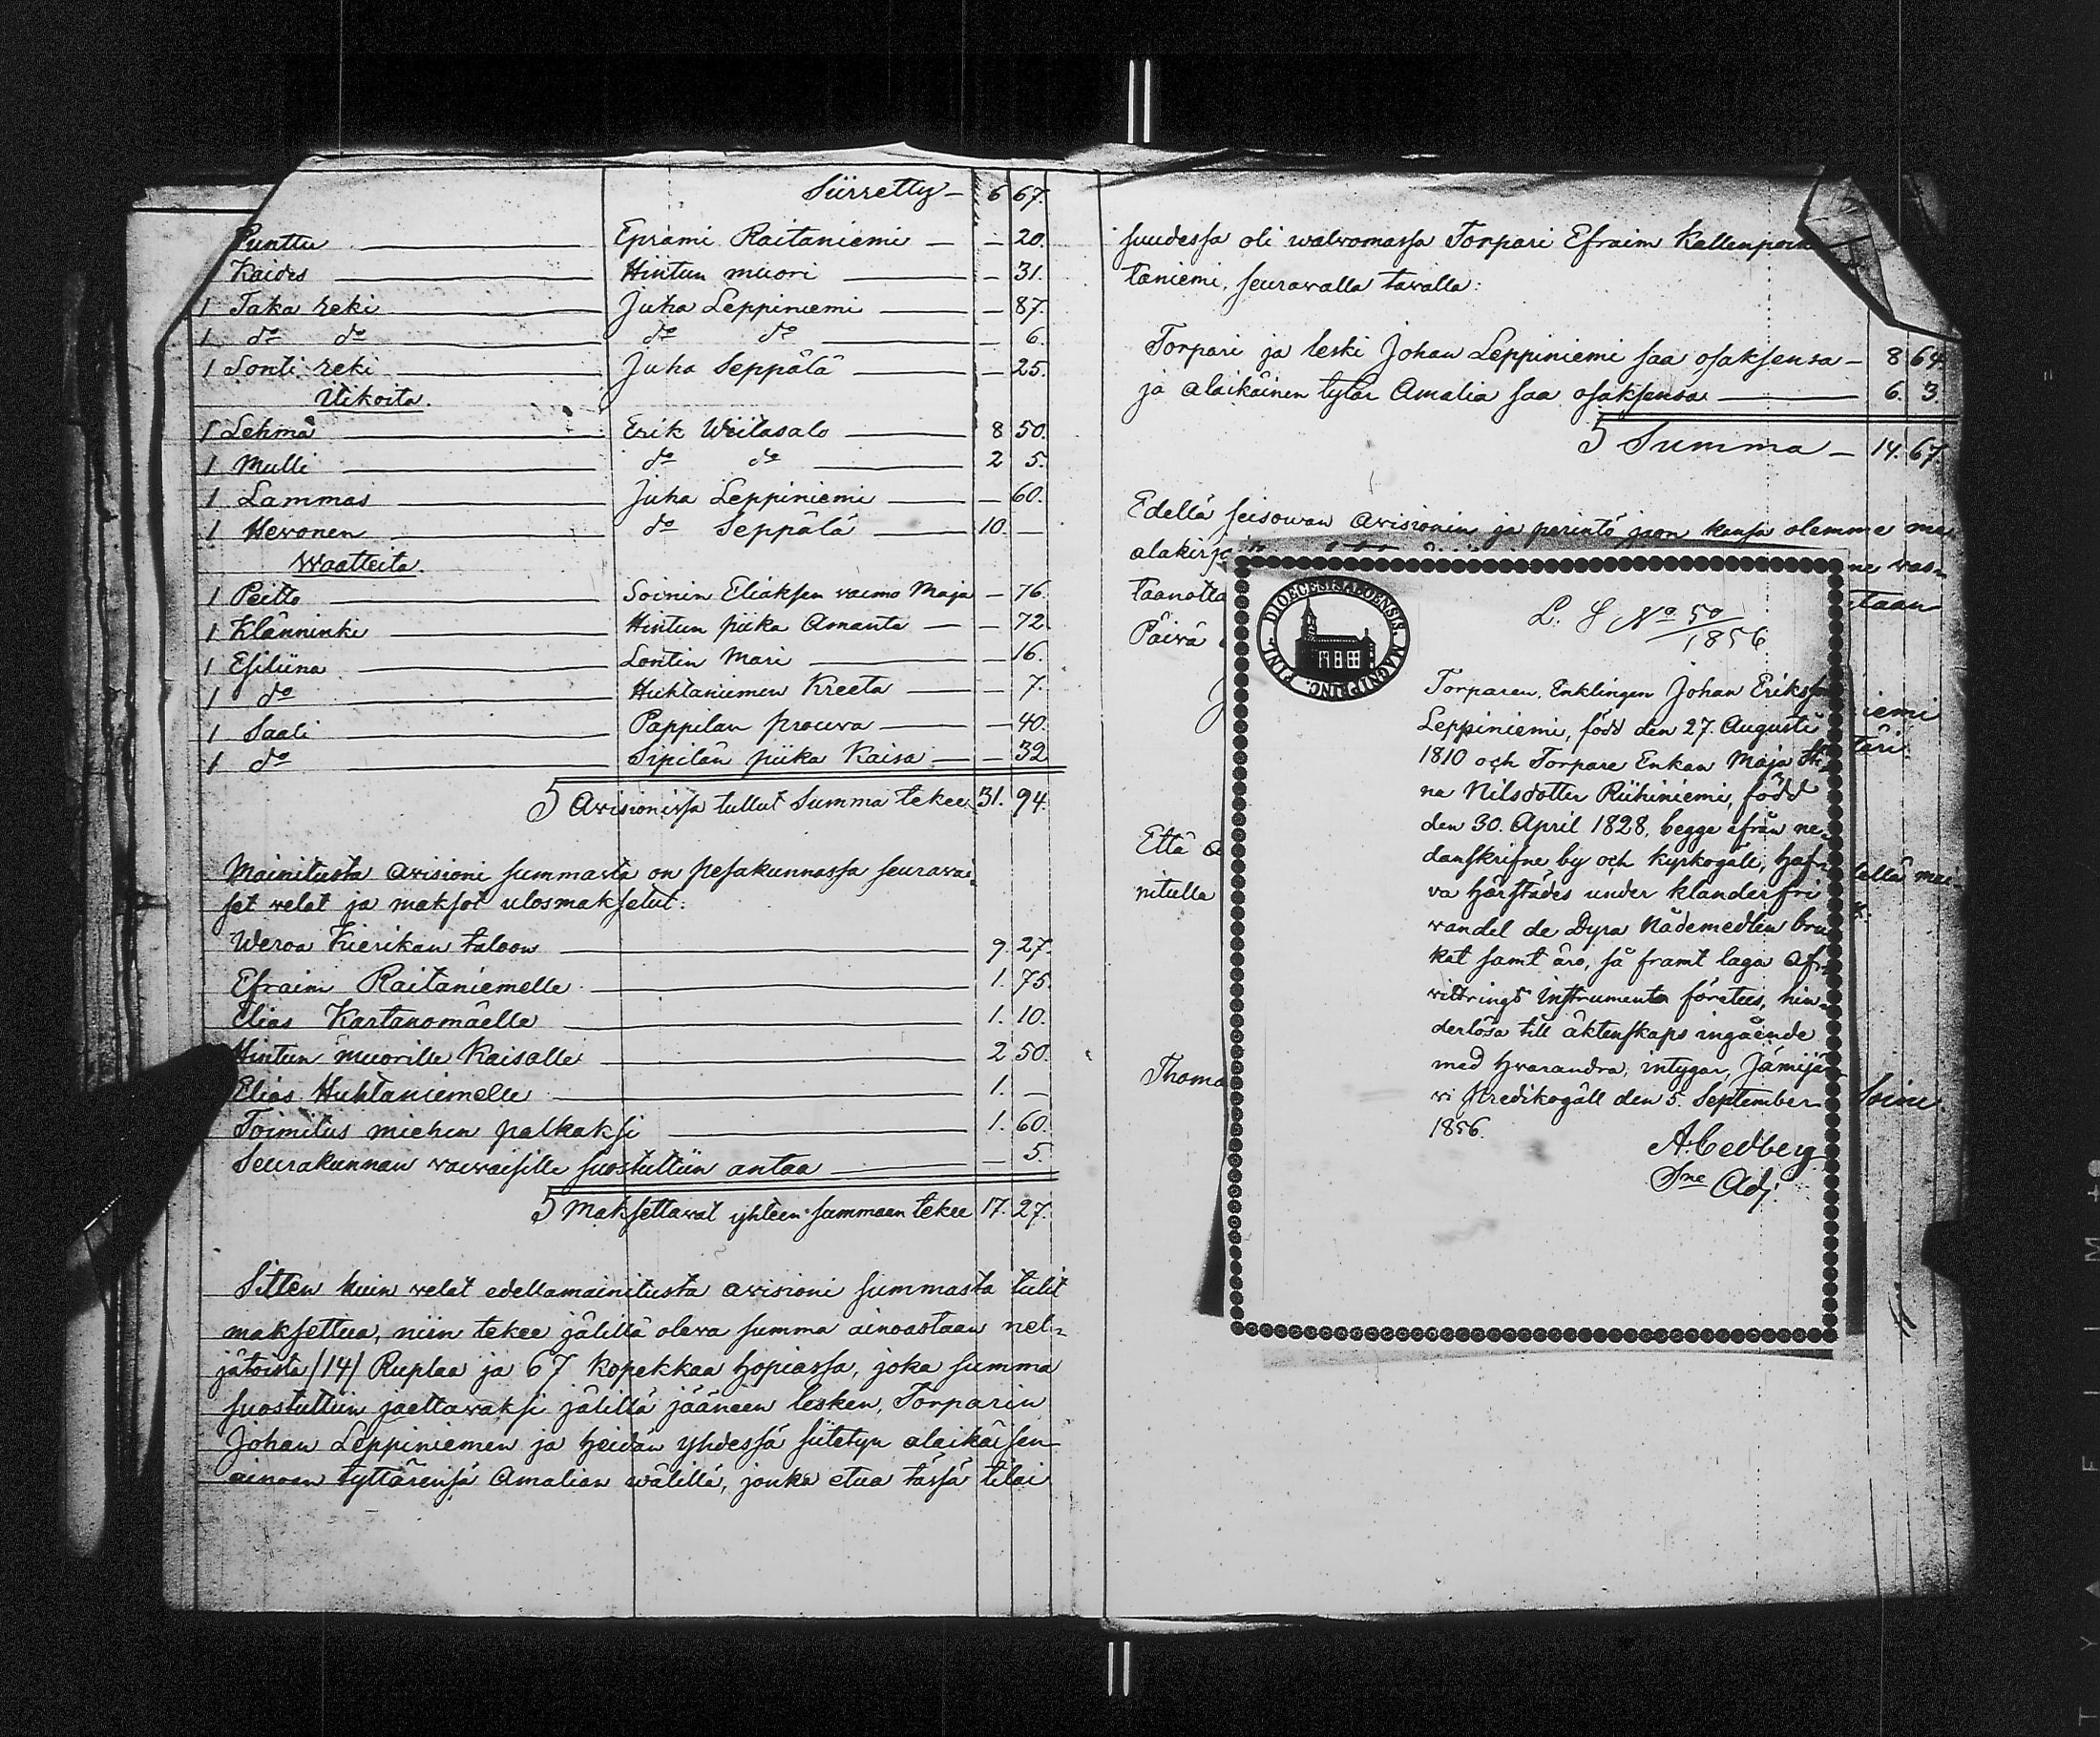 Siirretty — 6 67.
Punttu — Eprami Raitaniemi — — 20.
Kaides — Hintun muori — — 31.
1 Taka reki — Juha Leppiniemi — — 87.
1 do do — do do — — 6.
1 Sonti reki — Juha Seppälä — — 25.
Elikoita.
1 Lehmä — Erik Wiitasalo — 8 50.
1 Mulli — do do — 2 5.
1 Lammas — Juha Leppiniemi — — 60.
1 Hevonen — do Seppälä — 10. —
Waatteita.
1 Peitto — Soinin Eliaksen vaimo Maja — 76.
1 Klänninki — Hintun piika Amanta — — 72.
1 Esiliina — Lontin Mari — — 16.
1 do — Huhtaniemen Kreeta — — 7.
1 Saali — Pappilan prouva — — 40.
1 do — Sipilän piika Kaisa — — 32
Avisionissa tullut Summa tekee 31. 94.
Mainitusta avisioni summasta on pesäkunnassa seuravai-
set velat ja maksot ulosmaksetut:
Weroa Kierikan taloon — 9. 27.
Efraim Raitaniemelle — 1. 75.
Elias Kartanomäelle — 1. 10.
Hintun muorille Kaisalle — 2 50.
Elias Huhtaniemelle — 1. —
Toimitus miehen palkaksi — 1. 60.
Seurakunnan vaivaisille suostuttiin antaa — — 5.
Maksettavat yhteen summaan tekee 17. 27.
Sitten kuin velat edellamainitusta avisioni summasta tulit
maksettua, niin tekee jälillä oleva summa ainoastaan nel-
jätoista /14/ Ruplaa ja 67 kopekkaa hopiassa, joka summa
suostuttiin jaettavaksi jälillä jääneen lesken, Torparin
Johan Leppiniemen ja heidän yhdessä siitetyn alaikäisen
ainoan tyttärensä Amalian välillä, jonka etua tässä tilai
suudessa oli walvomassa Torpari Efraim Kallenpoik
taniemi, seuravalla tavalla:
Torpari ja leski Johan Leppiniemi saa osaksensa — 8 64
ja alaikäinen tytär Amalia saa osaksensa — 6. 3
Summa — 14. 67.
Edellä seisovan avisionin ja perintö jaon kansa olemme me
alakirjo
ne vas-
taanotta
taan
Päivä
iemi
täri.
Että a
lellä mai-
nitulla
Thoma
Soini.
FINL. DIOECESIS ABOENSIS. MAGNI PRINC.
L. S No 50/1856
Torparen, Enklingen Johan Eriksson
Leppiniemi, född den 27. Augusti
1810 och Torpare Enkan Maja Sti-
na Nilsdotter Riihiniemi, född
den 30. April 1828, begge ifrån ne-
danskrifne by och kyrkogäll, haf-
va härstädes under klanderfri
vandel de Dyra Nådemedlen bru
kat samt äro, så framt laga af-
vittrings Instrumenta företees, hin-
derlösa till äktenskaps ingående
med hvarandra, intygar, Jämijär
vi Predikogäll den 5. September
1856.
A. Cedberg
Sne Adj.